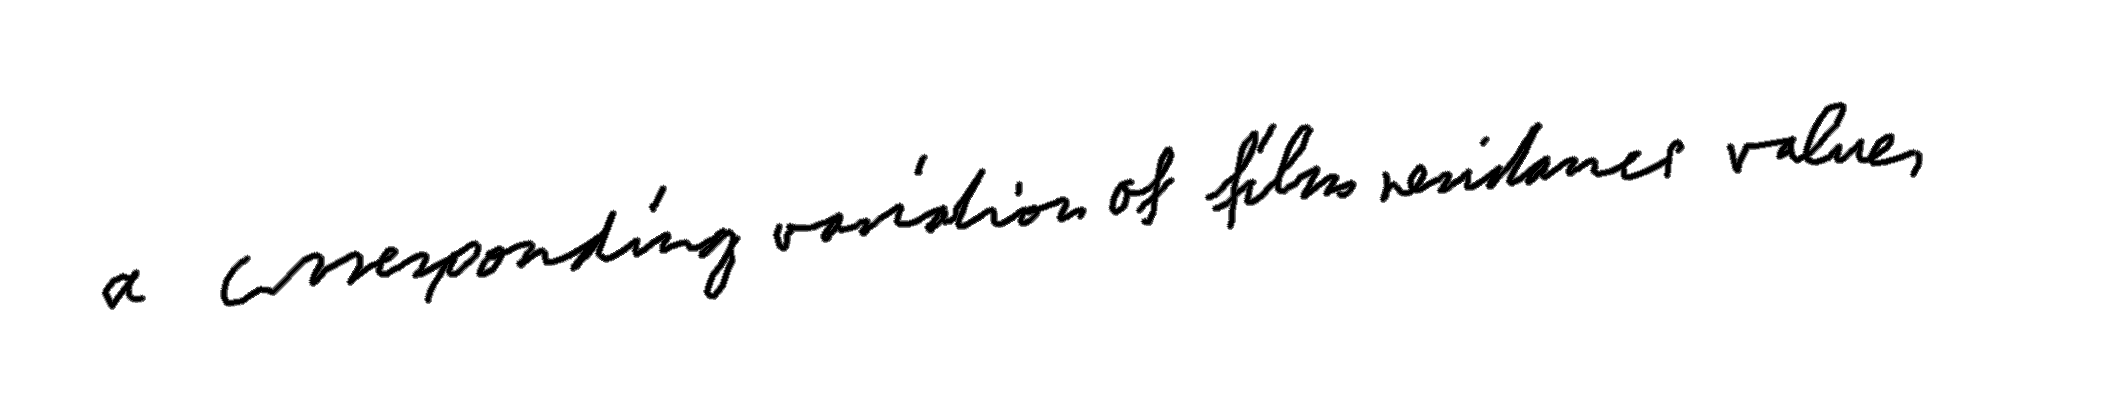 a corresponding variation of film resistances values